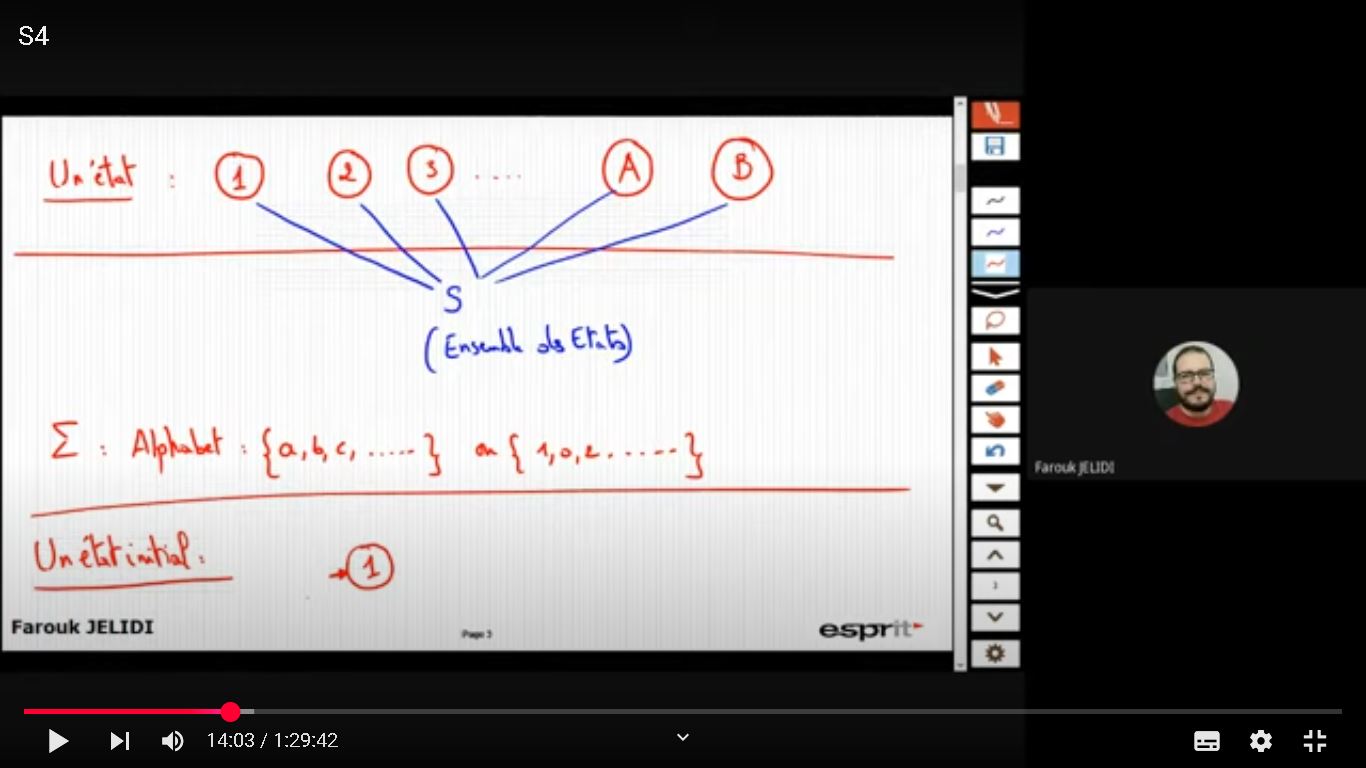 S4
Un état : 1 2 3 .... A B
S
(Ensemble des Etats)
Σ : Alphabet : {a, b, c, .....} ou { 1, 0, 2 ......}
Un état initial : → 1
Farouk JELIDI
Page 3
esprit
Farouk JELIDI
14:03 / 1:29:42